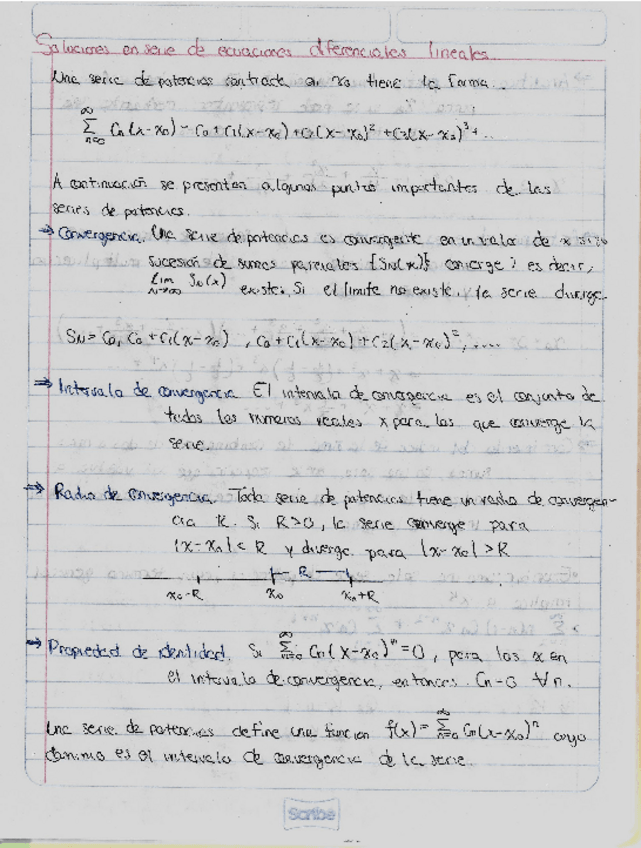 Soluciones en serie de ecuaciones diferenciales lineales.
Una serie de potencias centrada en x₀ tiene la forma.
∞
∑ Cn(x-x₀)ⁿ = C₀ + C₁(x-x₀) + C₂(x-x₀)² + C₃(x-x₀)³ + ..
n=0
A continuación se presentan algunos puntos importantes de las
series de potencias.
→ Convergencia. Una serie de potencias es convergente en un valor de x si su
sucesión de sumas parciales {Sn(x)} converge; es decir,
lim Sn(x) existe. Si el límite no existe, la serie diverge
N→∞
SN = C₀, C₀ + C₁(x-x₀), C₀ + C₁(x-x₀) + C₂(x-x₀)², ....
→ Intervalo de convergencia El intervalo de convergencia es el conjunto de
todos los números reales x para los que converge la
serie.
→ Radio de convergencia. Toda serie de potencias tiene un radio de convergen-
cia R. Si R>0, la serie converge para
|x-x₀| < R y diverge para |x-x₀| > R
R
x₀-R x₀ x₀+R
→ Propiedad de identidad. Si ∑ Cn(x-x₀)ⁿ = 0, para los x en
el intervalo de convergencia, entonces Cn=0 ∀n.
Una serie de potencias define una función f(x) = ∑ Cn(x-x₀)ⁿ cuyo
dominio es el intervalo de convergencia de la serie.
Scribe